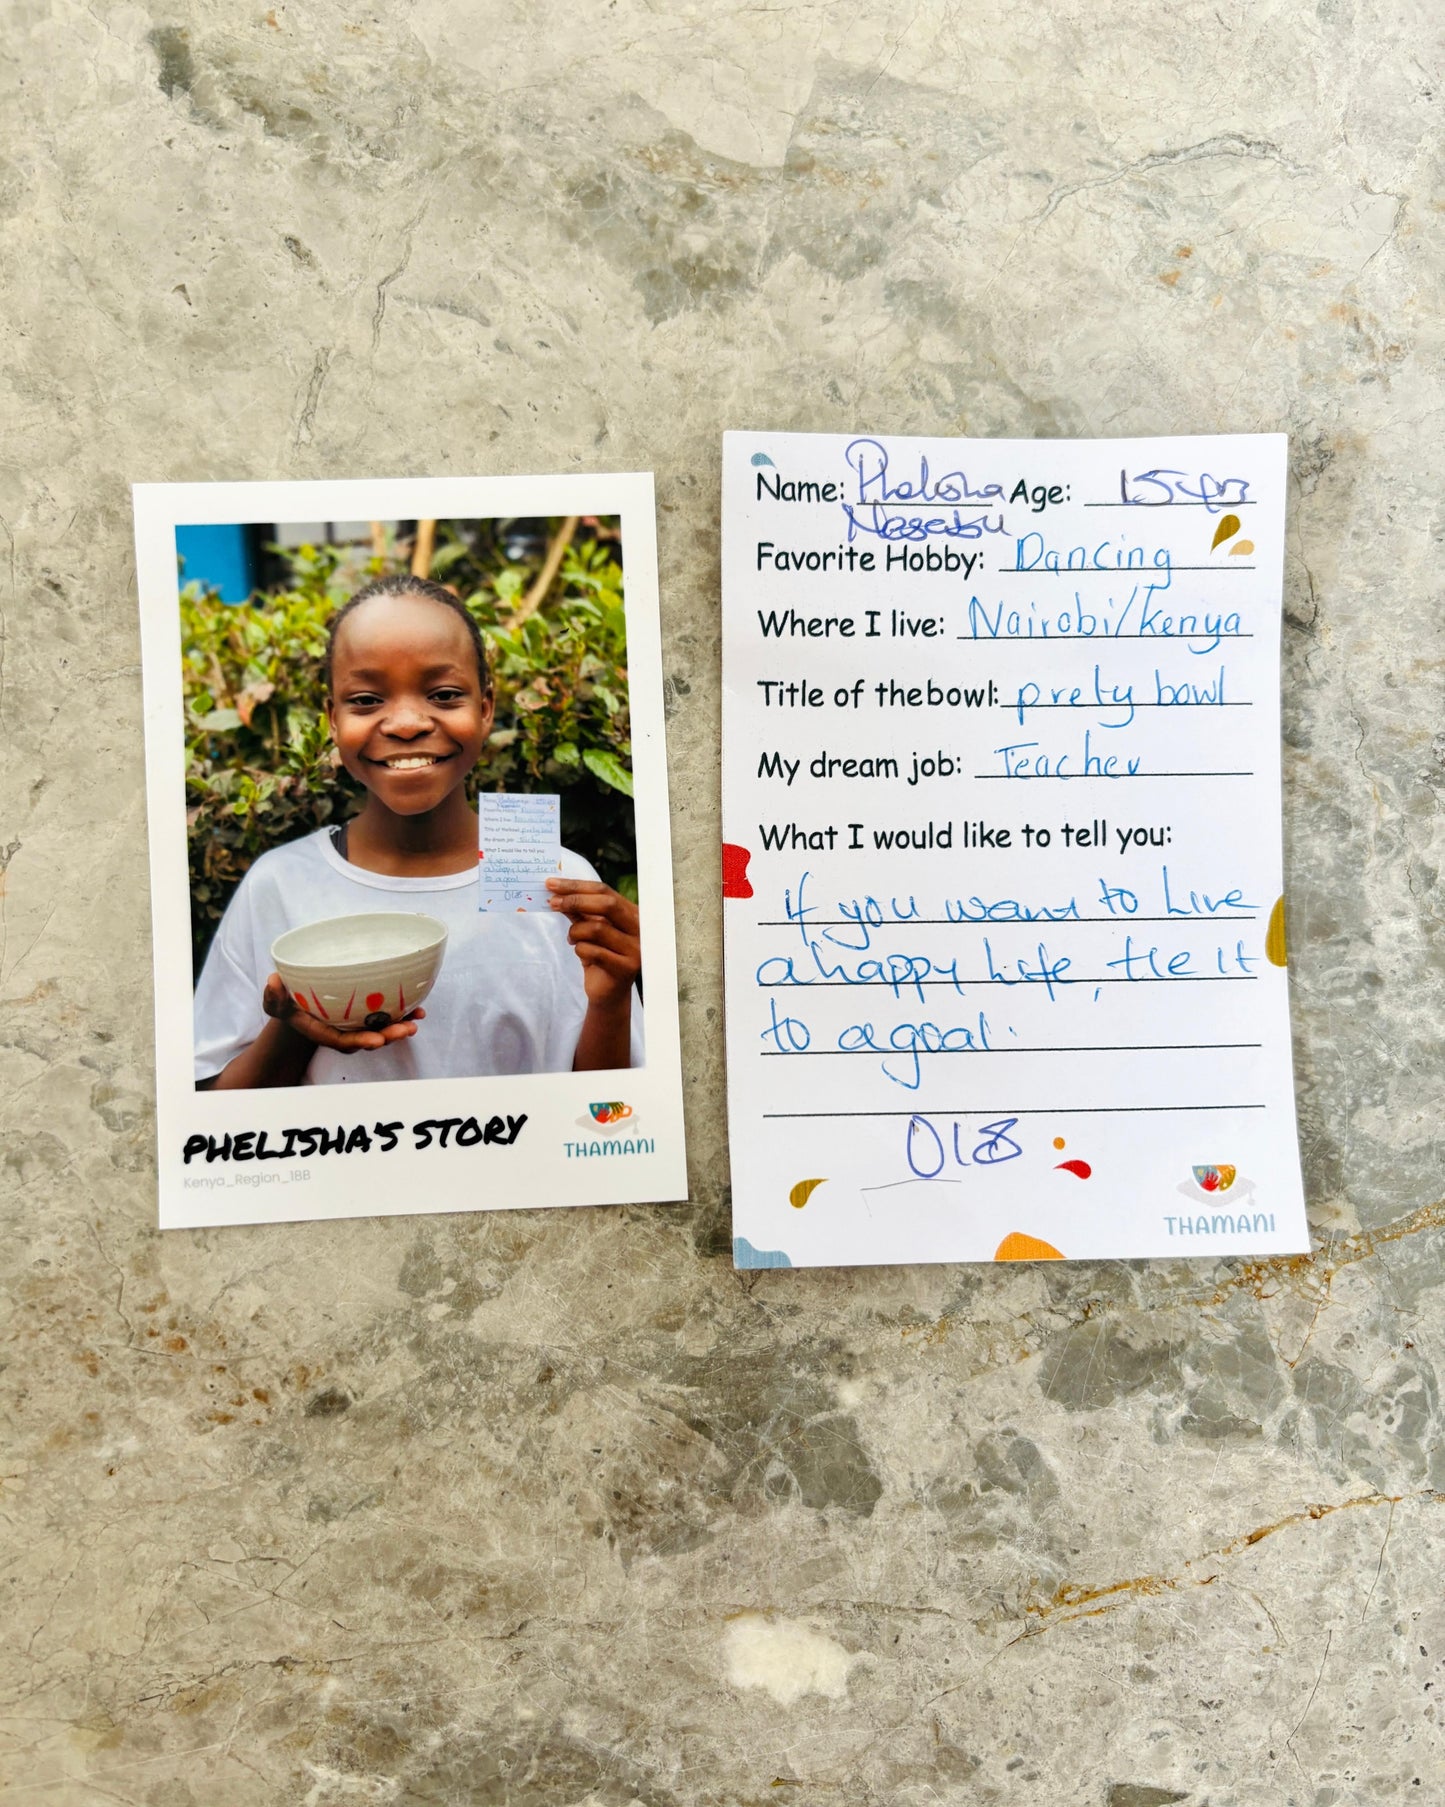 PHELISHA'S STORY
Kenya_Region_18B
THAMANI
Name: Phelisha Age: 15 yrs
Favorite Hobby: Dancing
Where I live: Nairobi/Kenya
Title of the bowl: prety bowl
My dream job: Teacher
What I would like to tell you:
if you want to Live
a happy Life, tie it
to a goal.
018
THAMANI